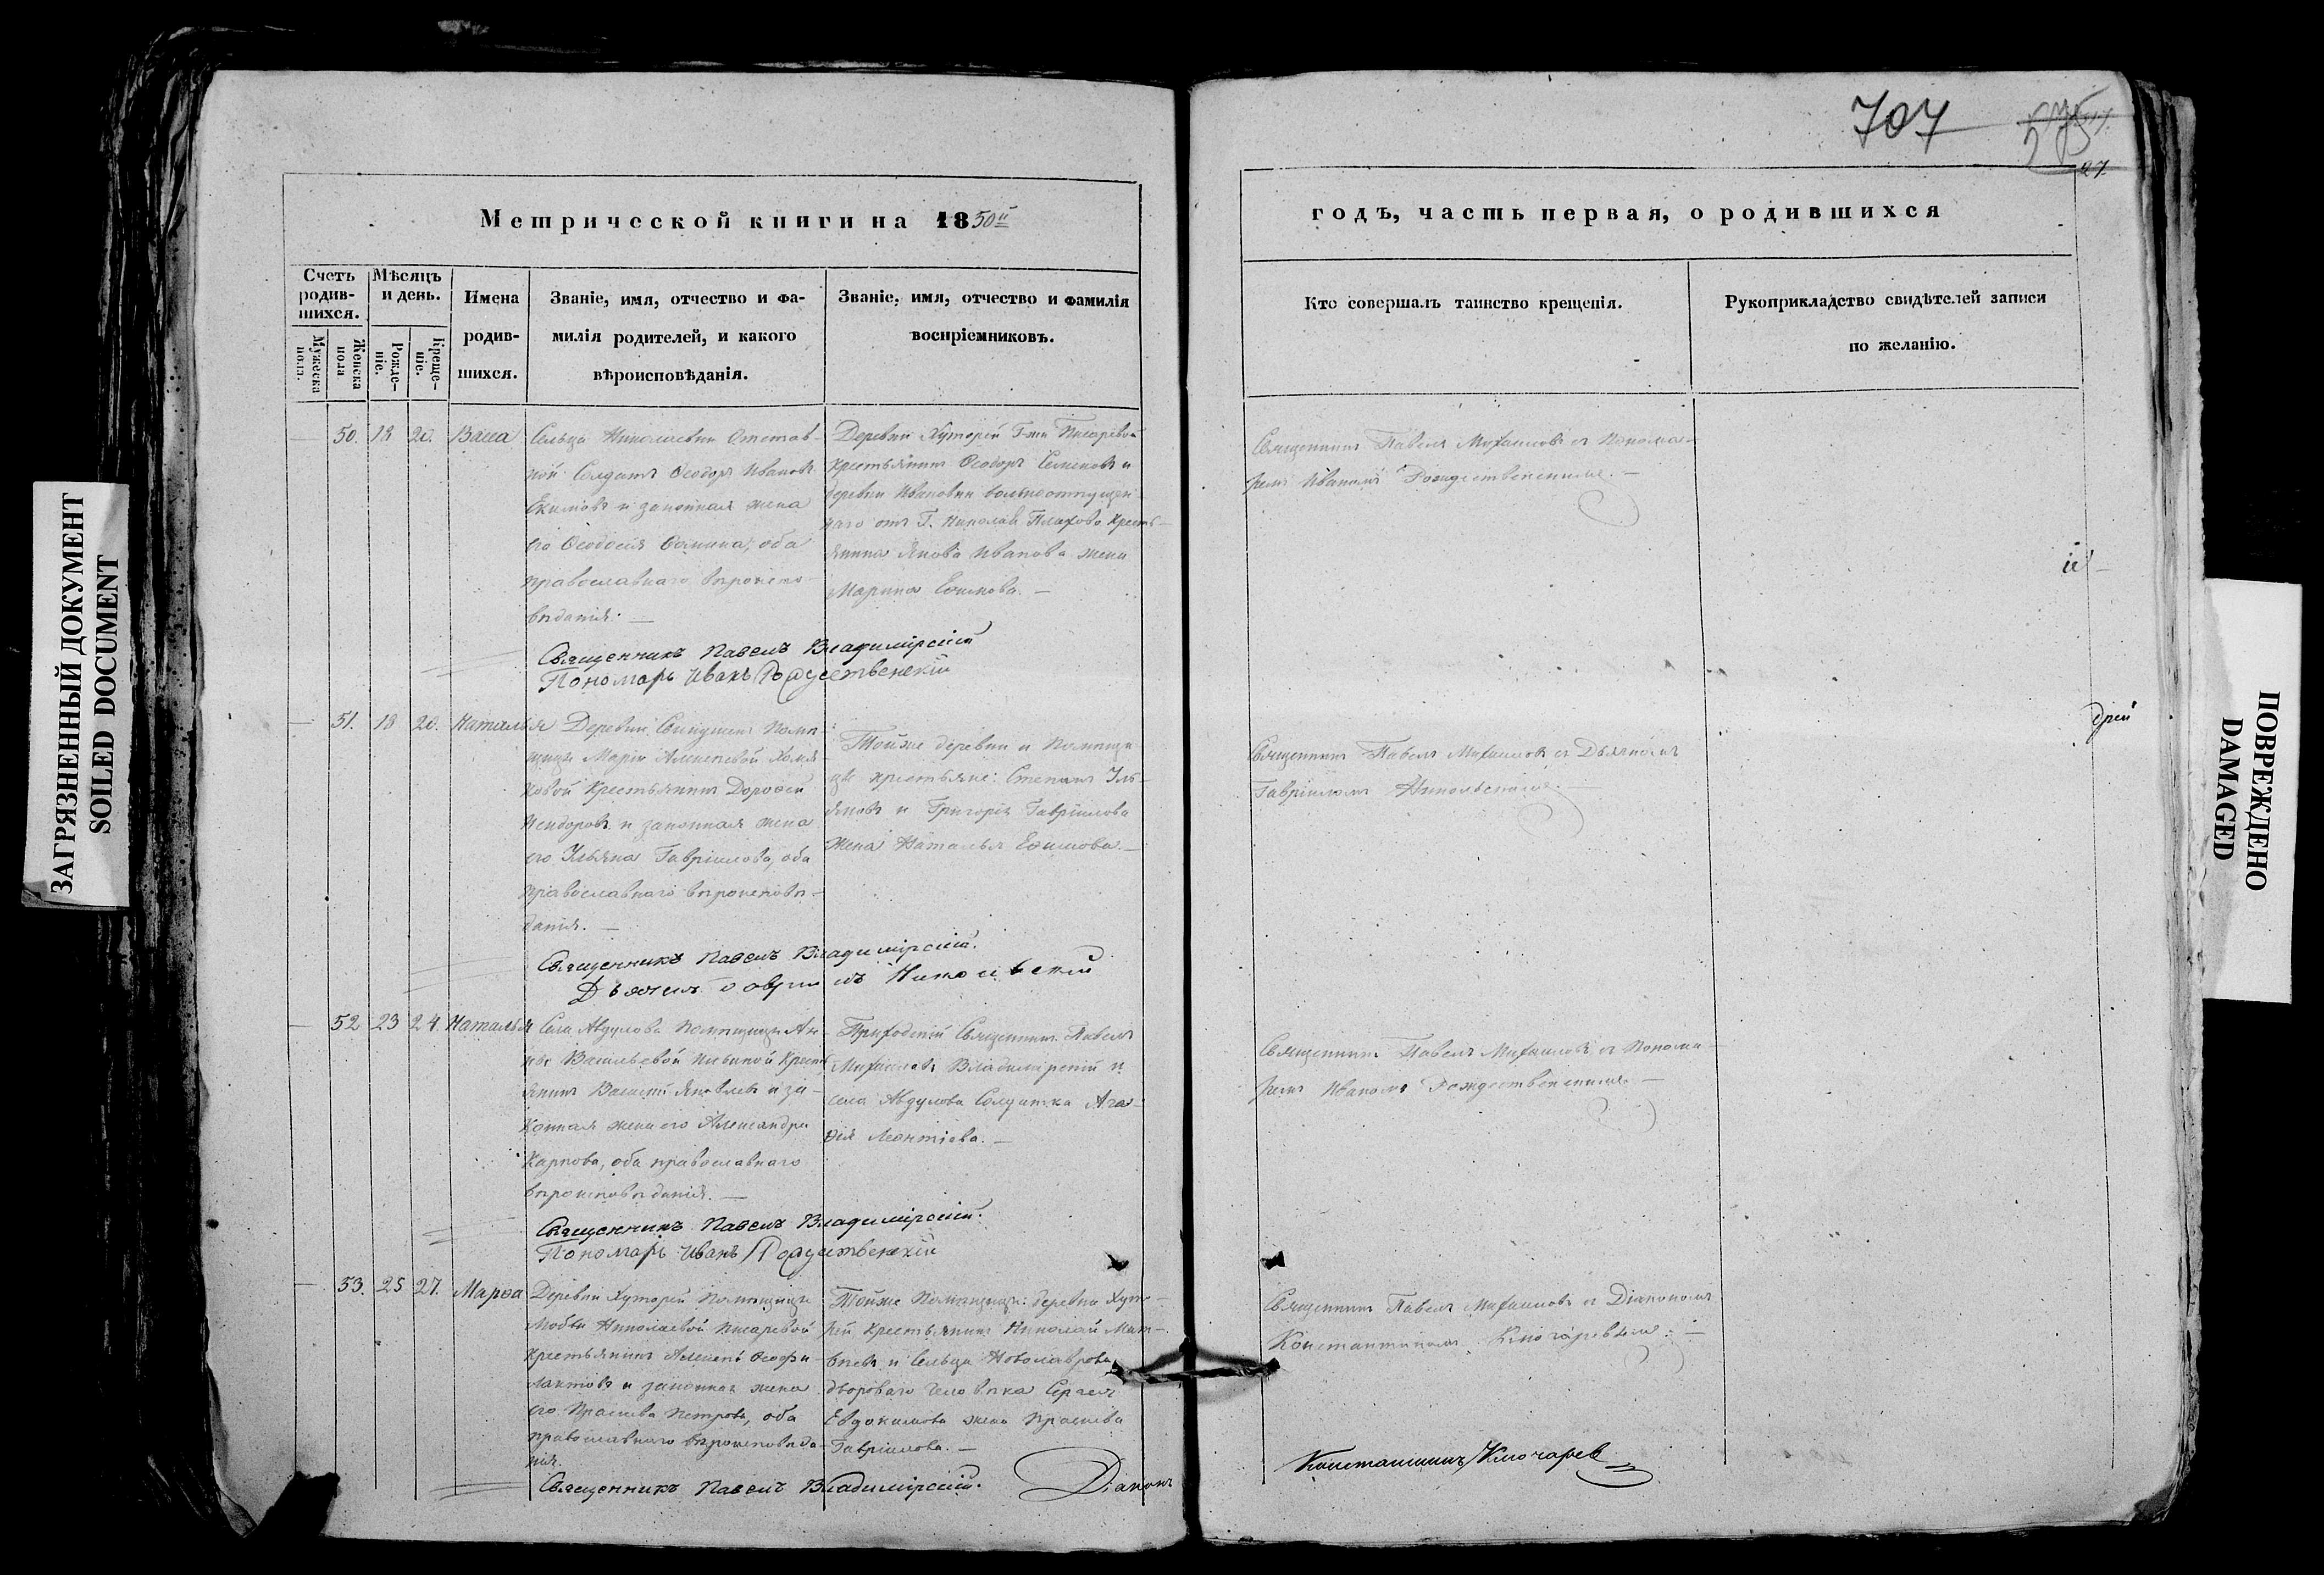 707
275
97
Метрической книги на 1850й
годъ, часть первая, о родившихся
Счетъ родив-шихся.
Мужеска пола.
Женска пола
Мѣсяцъ и день.
Рожде-ніе.
Креще-ніе.
Имена
родив-
шихся.
Званіе, имя, отчество и фа-
милія родителей, и какого
вѣроисповѣданія.
Званіе, имя, отчество и фамилія
воспріемниковъ.
Кто совершалъ таинство крещенія.
Рукоприкладство свидѣтелей записи
по желанію.
50. 18 20. Васса
Сельца Николаевки Отстав-
ной Солдатъ Ѳеодоръ Ивановъ
Екимовъ и законная жена
его Ѳеодосія Ѳомина, оба
православнаго вѣроиспо-
вѣданія. —
Деревни Хуторей Г-жи Писаревой
Крестьянинъ Ѳеодоръ Семеновъ и
деревни Ивановки вольноотпущен-
наго отъ Г. Николая Плахово Кресть-
янина Якова Иванова жена
Марина Ефимова. —
Священникъ Павелъ Михаиловъ съ Понома-
ремъ Иваномъ Рождественскимъ. —
Священникъ Павелъ Владимірскій
Пономарь Иванъ Рождественскій
й
51. 18 20. Наталья
Деревни Помѣ-
щицы Маріи Алексѣевой Хомя-
ковой Крестьянинъ Дороѳей
Исидоровъ и законная жена
его Ульяна Гавріилова, оба
православнаго вѣроисповѣ-
данія. —
Тойже деревни и Помѣщи-
цы крестьяне: Степанъ Уль-
яновъ и Григорія Гавріилова
жена Наталья Ефимова. —
Священникъ Павелъ Михаиловъ съ Дьячкомъ
Гавріиломъ Никольскимъ. —
дрей
Священникъ Павелъ Владимірскій.
Дьячекъ Гавріилъ Никольскій
52 23 24. Наталья
Села Авдулова Помѣщицы Ан-
ны Васильевой Крестъ-
янинъ Василій Яковлевъ и за-
конная жена его Александра
Карпова, оба православнаго
вѣроисповѣданія. —
Приходскій Священникъ Павелъ
Михаиловъ Владимірскій и
села Авдулова Солдатка Ага-
фія Леонтіева. —
Священникъ Павелъ Михаиловъ съ Понома-
ремъ Иваномъ Рождественскимъ. —
Священникъ Павелъ Владимірскій.
Пономарь Иванъ Рождественскій
53. 25 27. Марѳа
Деревни Хуторей Помѣщицы
Любви Николаевой Писаревой
Крестьянинъ Алексѣй Ѳеофи-
лактовъ и законная жена
его Прасковья Петрова, оба
православнаго вѣроисповѣда-
нія.
Тойже Помѣщицы: деревни Хуто-
рей Крестьянинъ Николай Мат-
вѣевъ и Сельца Новолаврова
двороваго человѣка Сергея
Евдокимова жена
Гавріилова. —
Священникъ Павелъ Михаиловъ съ Діакономъ
Константиномъ Ключаревымъ. —
Священникъ Павелъ Владимірскій. Діаконъ
Константинъ Ключарев
ЗАГРЯЗНЕННЫЙ ДОКУМЕНТ
SOILED DOCUMENT
ПОВРЕЖДЕНО
DAMAGED